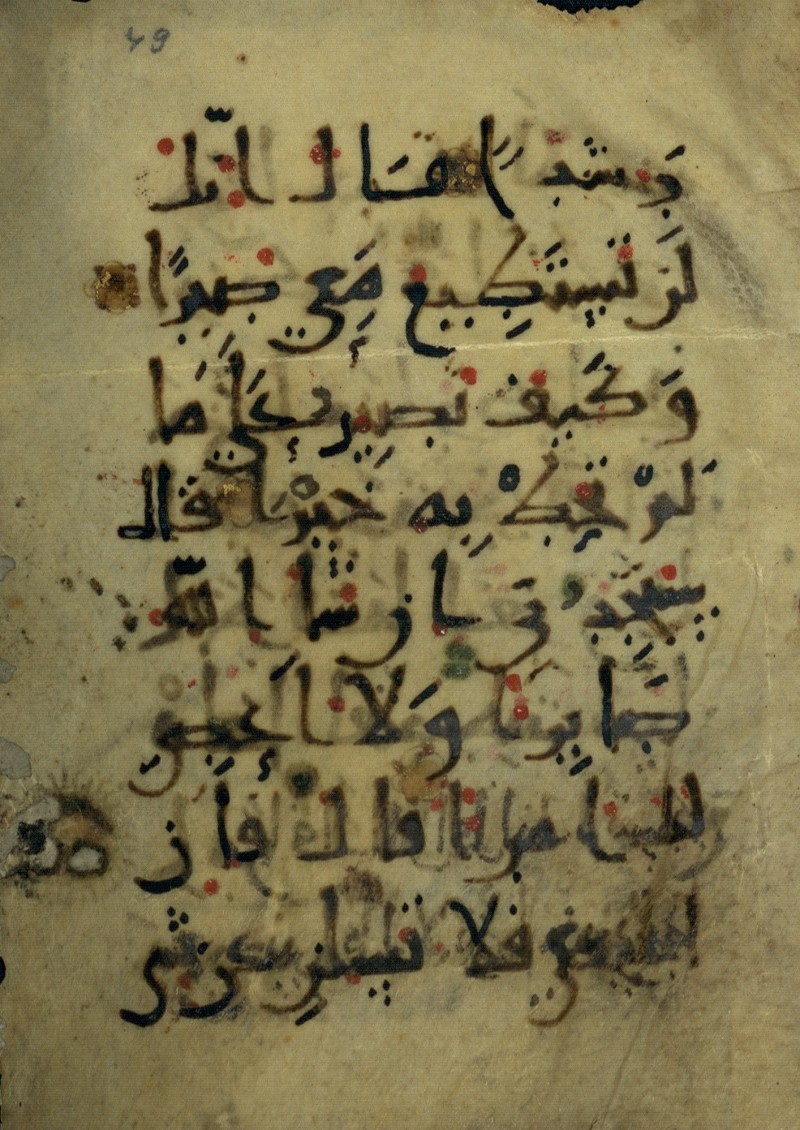 49
رشدا قال انك
لن تستطيع معي صبرا
وكيف تصبر على ما
لم تحط به خبرا قال
ستجدني ان شا الله
صابرا ولا اعصي
لك امرا قال فان
اتبعتني فلا تسلني عن شي